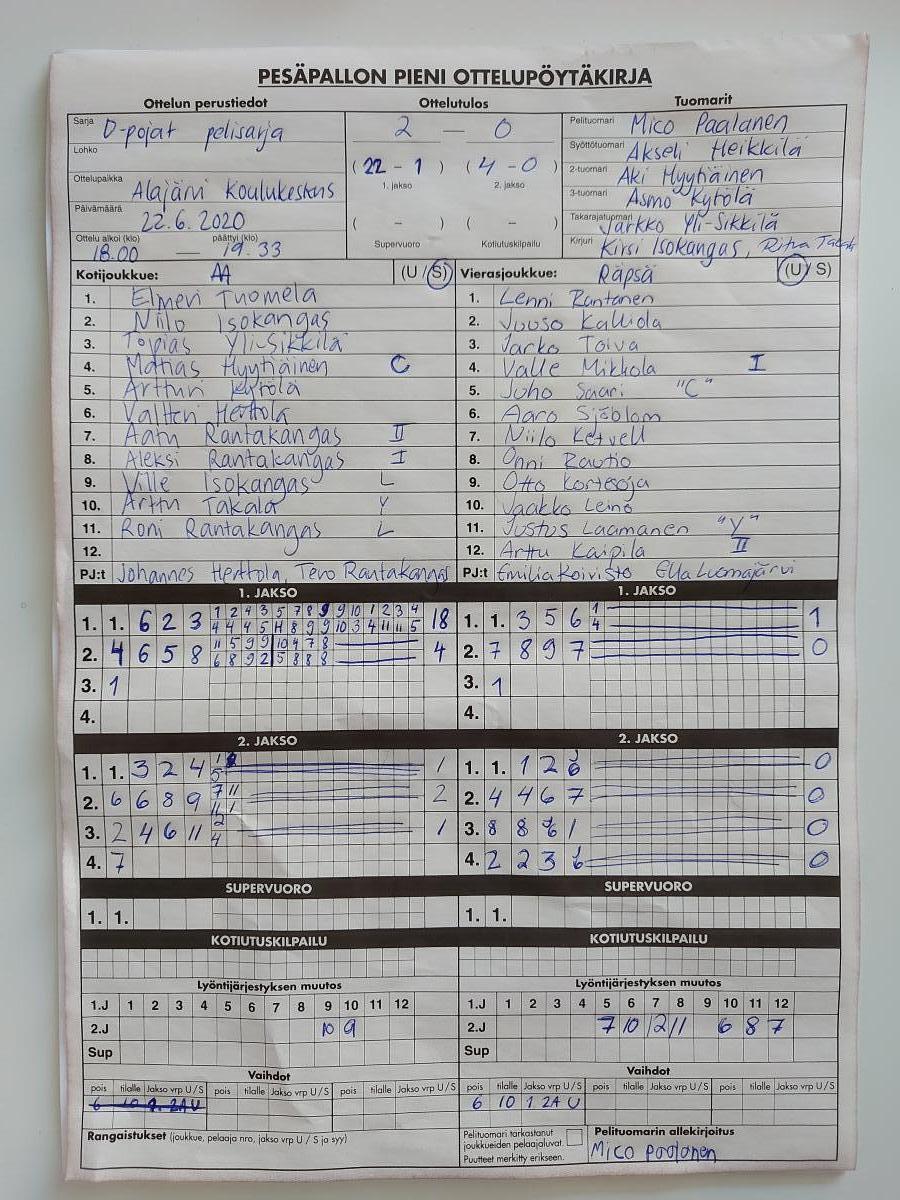 PESÄPALLON PIENI OTTELUPÖYTÄKIRJA
Ottelun perustiedot
Sarja D-pojat pelisarja
Lohko
Ottelupaikka Alajärvi Koulukeskus
Päivämäärä 22.6.2020
Ottelu alkoi (klo) päättyi (klo)
18.00 — 19.33
Ottelutulos
2 — 0
( 22 - 1 ) ( 4 - 0 )
1. jakso 2. jakso
( - ) ( - )
Supervuoro Kotiutuskilpailu
Tuomarit
Pelituomari Mico Paalanen
Syöttötuomari Akseli Heikkilä
2-tuomari Aki Hyytiäinen
3-tuomari Asmo Kytölä
Takarajatuomari Jarkko Yli-Sikkilä
Kirjuri Kirsi Isokangas, Ritva
Kotijoukkue: AA (U / S)
1. Elmeri Tuomela
2. Niilo Isokangas
3. Topias Yli-Sikkilä
4. Matias Hyytiäinen C
5. Artturi Kytölä
6. Valtteri Herttola
7. Aatu Rantakangas II
8. Aleksi Rantakangas I
9. Ville Isokangas L
10. Arttu Takala Y
11. Roni Rantakangas L
12.
PJ:t Johannes Herttola, Tero Rantakangas
Vierasjoukkue: Räpsä (U / S)
1. Lenni Rantanen
2. Juuso Kalliola
3. Jarko Toiva
4. Valle Mikkola I
5. Juho Saari "C"
6. Aaro Sjöblom
7. Niilo Ketvell
8. Onni Rautio
9. Otto Kortesoja
10. Jaakko Leino
11. Justus Laamanen "Y"
12. Arttu Kaipila II
PJ:t Emilia Koivisto Ella Luomajärvi
1. JAKSO
1. 1. 6 2 3 1 2 4 3 5 7 8 9 9 10 1 2 3 4 18
4 4 4 5 11 8 9 9 10 3 4 11 11 5
2. 4 6 5 8 11 5 9 9 10 4 7 8 4
6 8 9 2 5 8 8 8
3. 1
4.
1. JAKSO
1. 1. 3 5 6 1 1
4
2. 7 8 9 7 0
3. 1
4.
2. JAKSO
1. 1. 3 2 4 1
5
2. 6 6 8 9 7 11 2
11 1
3. 2 4 6 11 2 1
4
4. 7
2. JAKSO
1. 1. 1 2 6 0
2. 4 4 6 7 0
3. 8 8 1 0
4. 2 2 3 6 0
SUPERVUORO
1. 1.
SUPERVUORO
1. 1.
KOTIUTUSKILPAILU
KOTIUTUSKILPAILU
Lyöntijärjestyksen muutos
1.J 1 2 3 4 5 6 7 8 9 10 11 12
2.J 10 9
Sup
Lyöntijärjestyksen muutos
1.J 1 2 3 4 5 6 7 8 9 10 11 12
2.J 7 10 12 11 6 8 7
Sup
Vaihdot
pois tilalle Jakso vrp U / S pois tilalle Jakso vrp U / S pois tilalle Jakso vrp U / S
6 10 1. 2A U
Vaihdot
pois tilalle Jakso vrp U / S pois tilalle Jakso vrp U / S pois tilalle Jakso vrp U / S
6 10 1 2A U
Rangaistukset (joukkue, pelaaja nro, jakso vrp U / S ja syy)
Pelituomari tarkastanut
joukkueiden pelaajaluvat.
Puutteet merkitty erikseen.
Pelituomarin allekirjoitus
Mico Paalanen